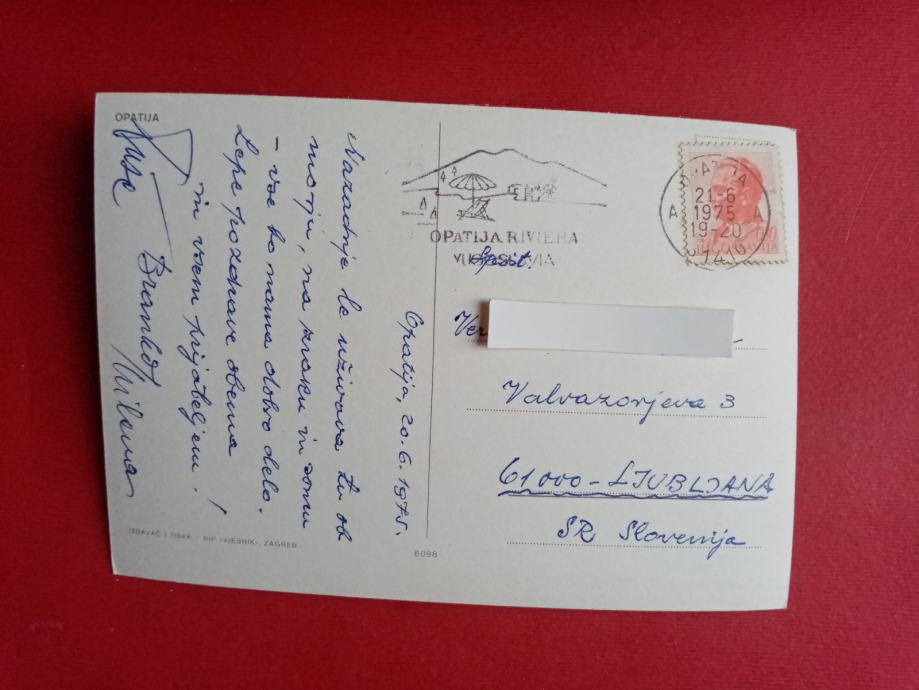 OPATIJA
Opatija, 20.6.1975.
Nazadnje le uživava tu ob
morju, na zraku in soncu
- vse to nama dobro dela.
Lepe pozdrave obema
in vsem prijateljem!
Branko
Milena
IZDAVAČ I TISAK - NIP »VJESNIK«, ZAGREB
6098
OPATIJA RIVIERA
YUGOSLAVIA
21-6
1975
A A
19-20
Spošt.
Ver
Valvazorjeva 3
61000 - LJUBLJANA
SR Slovenija